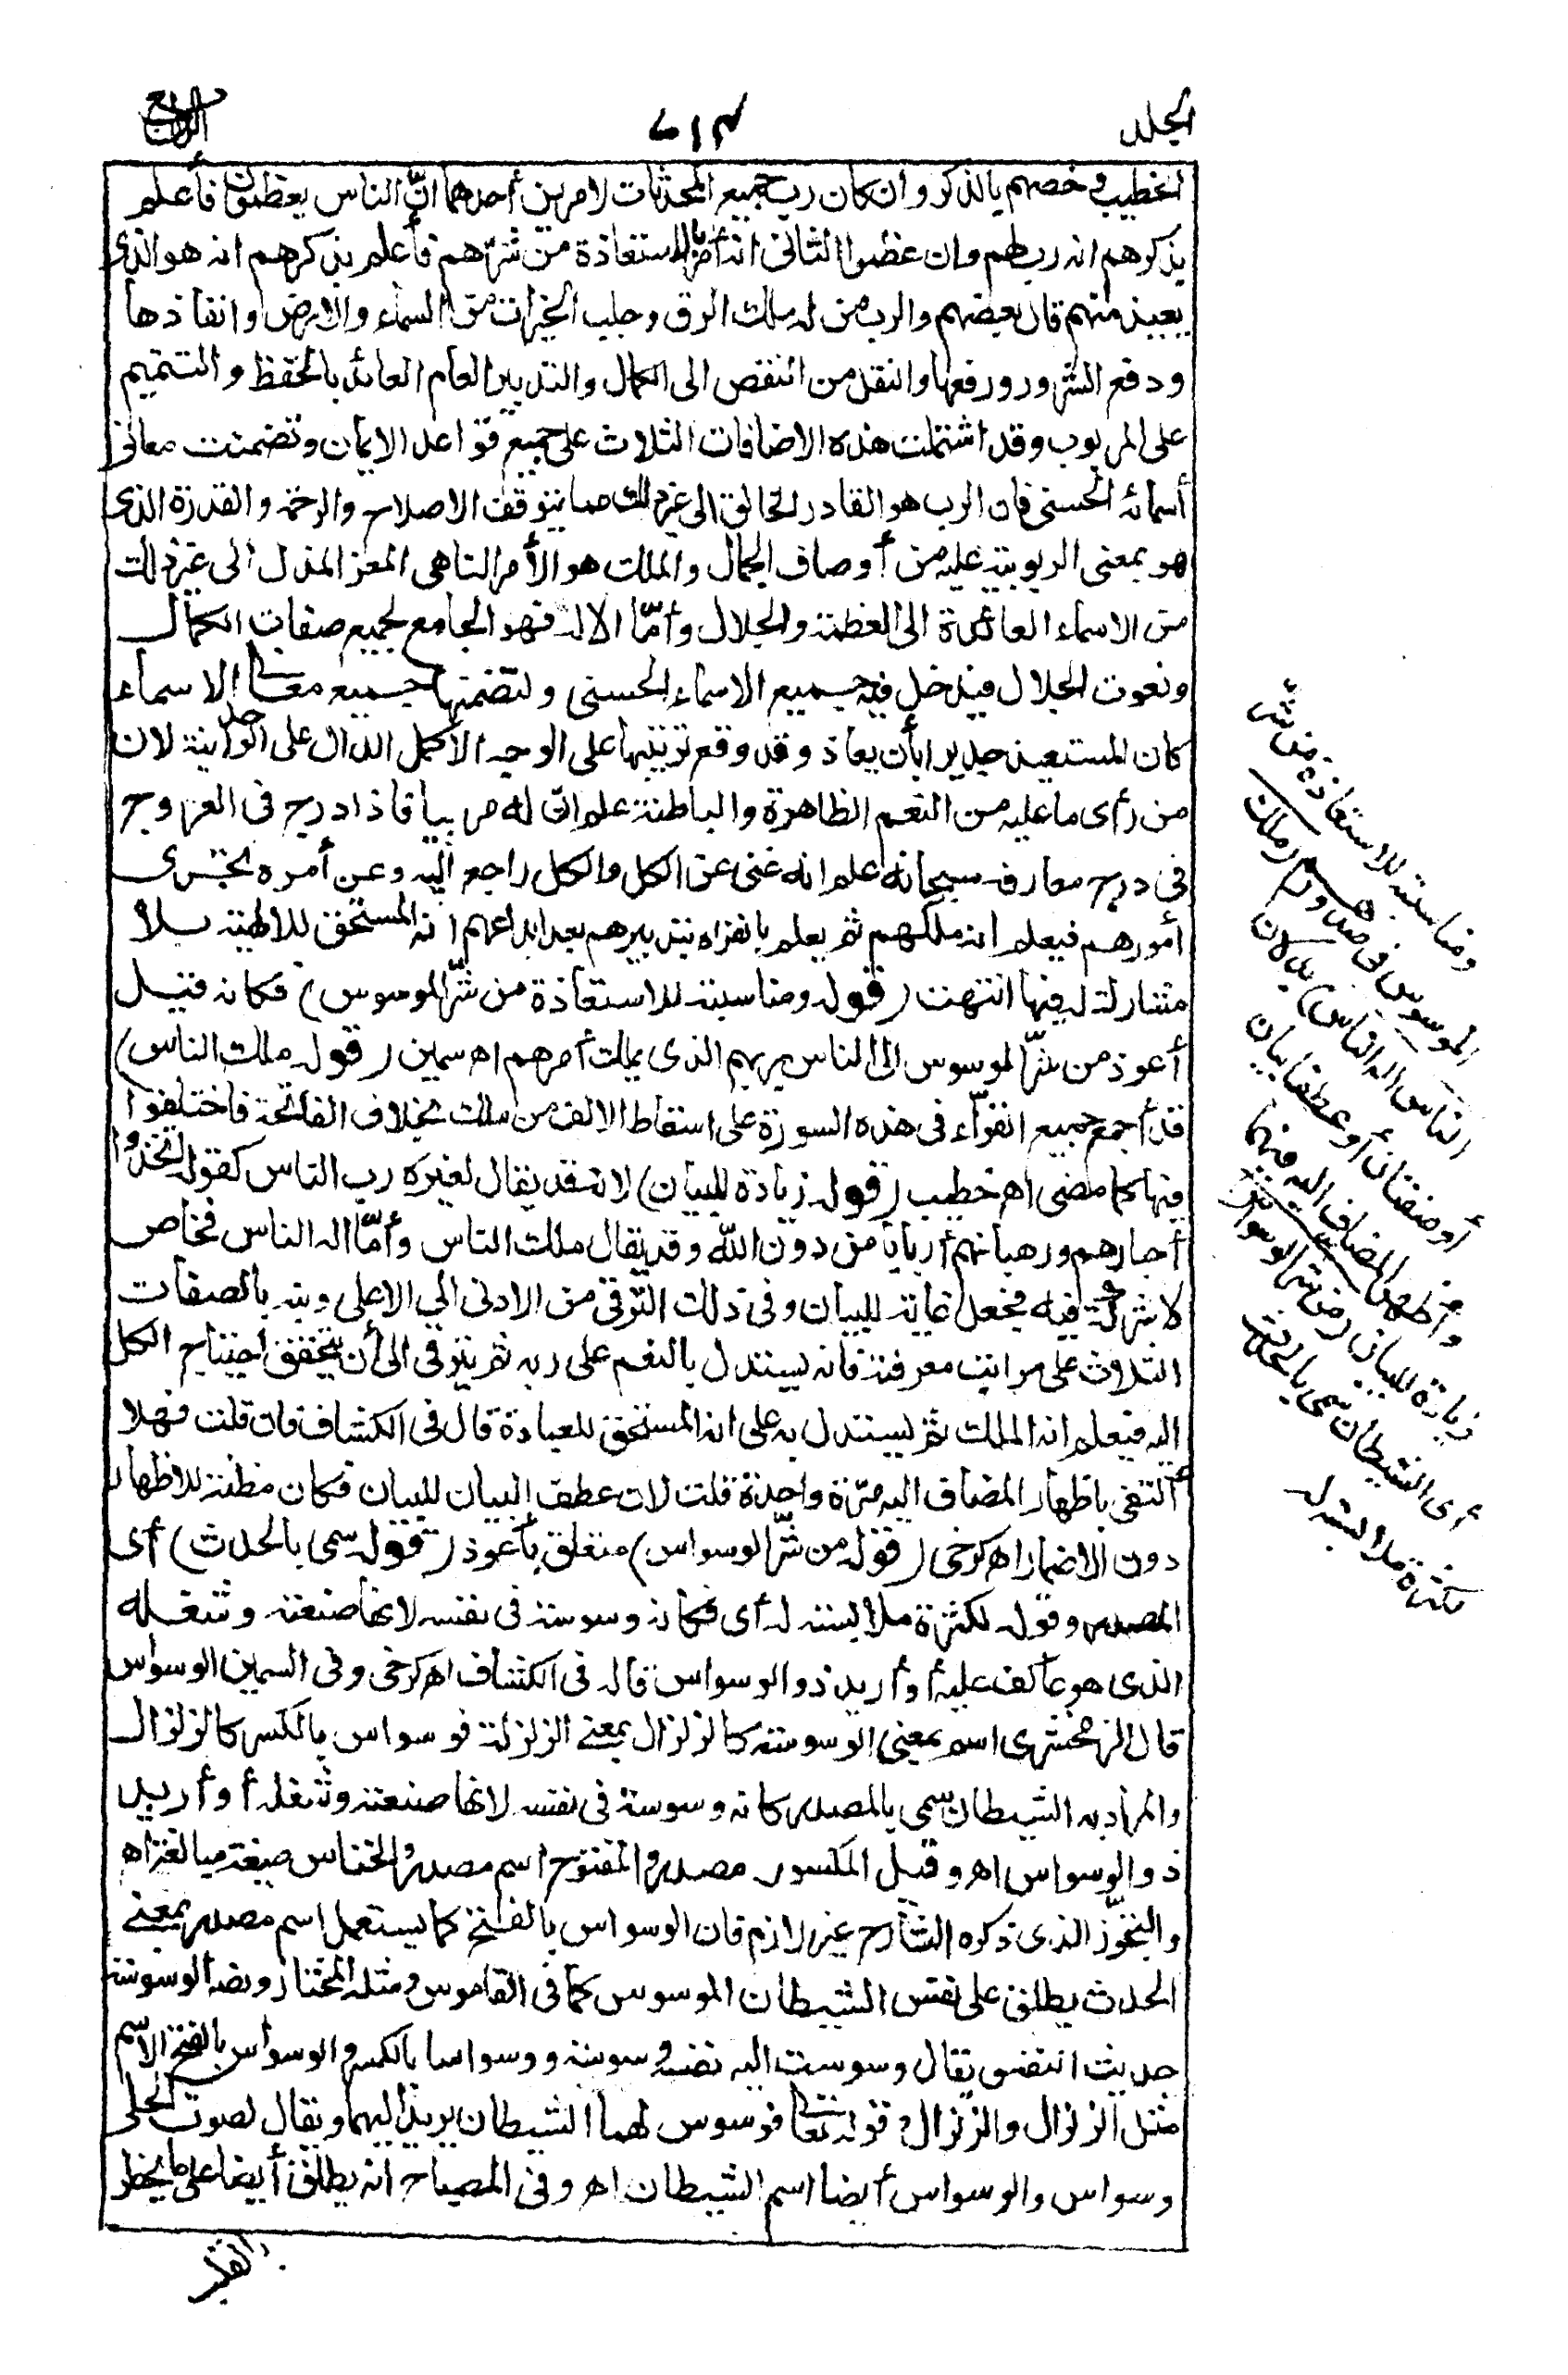 الجلد
٦١٣
الرابع
الخطيب في خصهم بالذكر وان كان رب جميع المحدثات لامرين أحدهما انّ الناس يعظمون فأعلم
بذكرهم انه ربهم وان عظموا الثاني انه أمر بالاستعاذة من شرّهم فأعلم بذكرهم انه هو الذي
يعيذ منهم قال بعضهم والرب من له ملك الرق وجلب الخيرات من السماء والارض وانفاذها
ودفع الشرور ورفعها والنقل من النقص الى الكمال والتدبير العام العائد بالحفظ والتتميم
على المربوب وقد اشتملت هذه الاضافات الثلاث على جميع قواعد الايمان وتضمنت معاني
أسمائه الحسنى فان الرب هو القادر الخالق الى غير ذلك مما يتوقف الاصلاح والرحمة والقدرة الذي
هو بمعنى الربوبية عليه من أوصاف الجمال والملك هو الأمر الناهي المعز المذل الى غير ذلك
من الاسماء العائدة الى العظمة والجلال وأمّا الاله فهو الجامع لجميع صفات الكمال
ونعوت الجلال فيدخل فيه جميع الاسماء الحسنى ولتضمنها جميع معاني الاسماء
كان المستعيذ جديرا بأن يعاذ وقد وقع ترتيبها على الوجه الأكمل الدال على الوحدانية لان
من رأى ما عليه من النعم الظاهرة والباطنة علم ان له مربيا فاذا درج في العروج
في درج معارفه سبحانه علم انه غني عن الكل والكل راجع اليه وعن أمره تجري
أمورهم فيعلم انه ملكهم ثم يعلم بانفراه بتدبيرهم بعد ابداعهم انه المستحق للالهية بلا
مشارك له فيها انتهت (قوله ومناسبة للاستعاذة من شرّ الموسوس) فكانه قيل
أعوذ من شرّ الموسوس الى الناس بربهم الذي يملك أمرهم اه سمين (قوله ملك الناس)
قد أجمع جميع القرّاء في هذه السورة على اسقاط الالف من ملك بخلاف الفاتحة فاختلفوا
فيها كما مضى اه خطيب (قوله زيادة للبيان) لانه قد يقال لغيره رب الناس كقوله اتخذوا
أحبارهم ورهبانهم أربابا من دون الله وقد يقال ملك الناس وأمّا اله الناس فخاص
لا شركة فيه فجعل غاية للبيان وفي ذلك الترقي من الادنى الى الاعلى وبته بالصفات
الثلاث على مراتب معرفته فانه يستدل بالنعم على ربه ثم يترقى الى أن يتحقق احتياج الكل
اليه فيعلم انه الملك ثم يستدل به على انه المستحق للعبادة قال في الكشاف فان قلت فهلا
أكتفي باظهار المضاف اليه مرّة واحدة قلت لان عطف البيان للبيان فكان مظنة للاظهار
دون الاضمار اه كرخي (قوله من شرّ الوسواس) متعلق بأعوذ (قوله سمى بالحدث) أى
المصدر وقوله لكثرة ملابسته له أى فكانه وسوسة في نفسه لانها صنعته وشغله
الذى هو عاكف عليه أو أريد ذو الوسواس قاله في الكشاف اه كرخي وفي السمين الوسواس
قال الزمخشري اسم بمعنى الوسوسة كالزلزال بمعنى الزلزلة فوسواس بالكسر كالزلزال
والمراد به الشيطان سمى بالمصدر كانه وسوسة في نفسه لانها صنعته وشغله أو أريد
ذو الوسواس اه وقيل المكسور مصدر والمفتوح اسم مصدر والخناس صيغة مبالغة اه
والتجوّز الذى ذكره الشارح غير لازم فان الوسواس بالفتح كما يستعمل اسم مصدر بمعنى
الحدث يطلق على نفس الشيطان الموسوس كما في القاموس ومثله المختار ونصه الوسوسة
حديث النفس يقال وسوست اليه نفسه وسوسة ووسواسا بالكسر والوسواس بالفتح الاسم
مثل الزلزال والزلزال وقوله تعالى فوسوس لهما الشيطان يريد اليهما ويقال لصوت الحلى
وسواس والوسواس أيضا اسم الشيطان اه وفي المصباح انه يطلق أيضا على ما يخطر
ومناسبة للاستعاذة من شر
الموسوس في صدورهم (ملك
الناس اله الناس) بدلان
أو صفتان أو عطفا بيان
وأظهر المضاف اليه فيهما
زيادة للبيان (من شر الوسواس)
أى الشيطان سمى بالحدث
لكثرة ملابسته له